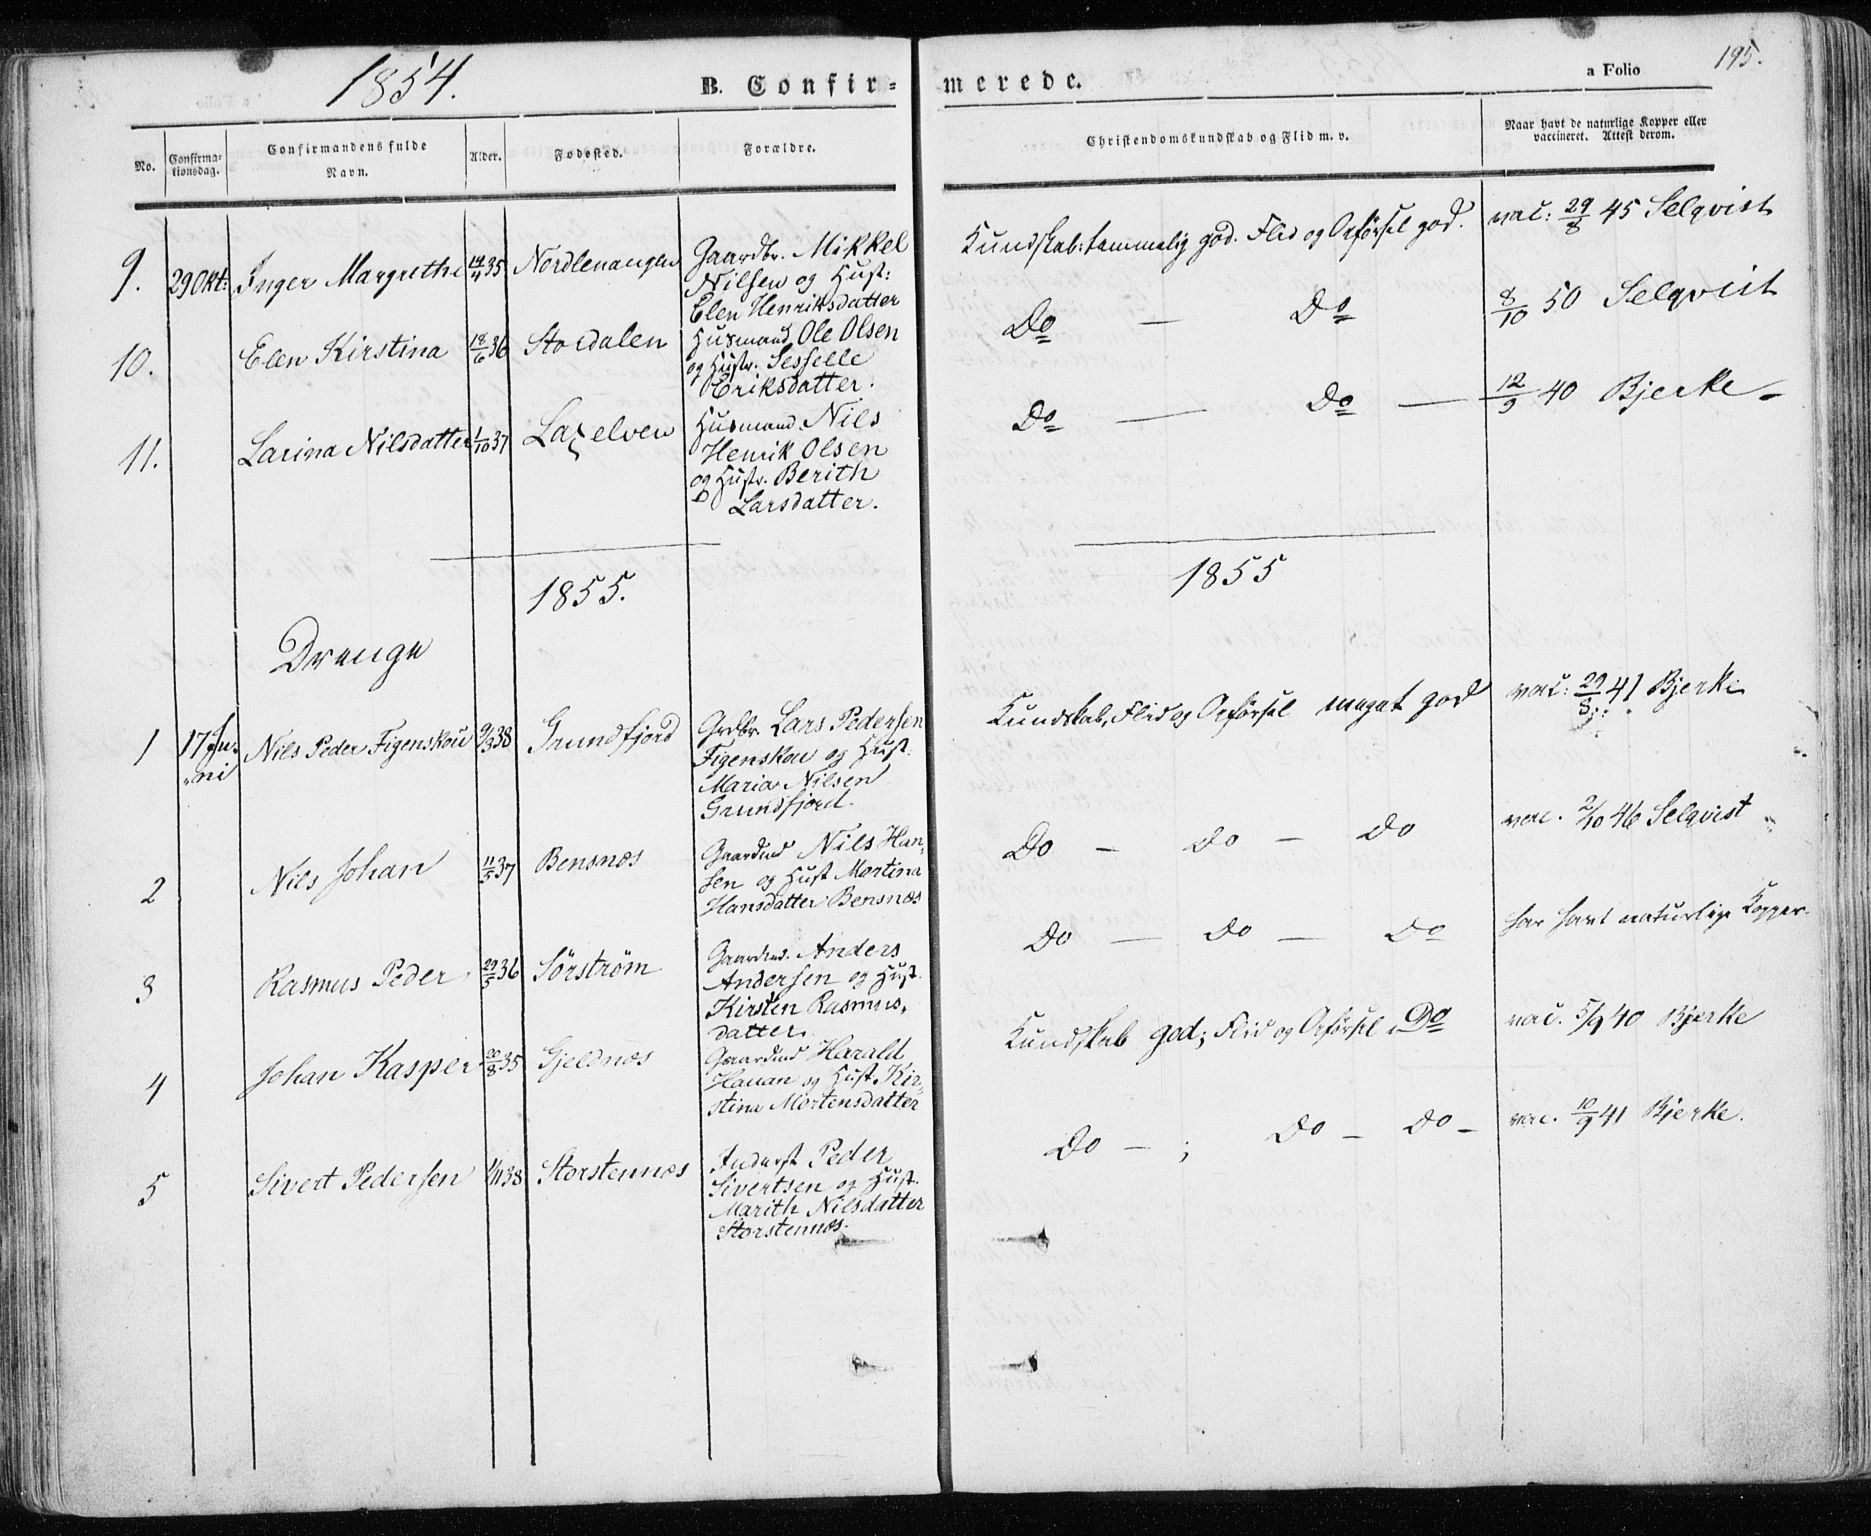 1854.
B. Confir-
merede.
a Folio
195.
No.
Confirma-
tionsdag.
Confirmandens fulde
Navn.
Alder.
Fødested.
Forældre.
Christendomskundskab og Flid m. v.
Naar havt de naturlige Kopper eller
vaccineret. Attest derom.
9. 29 Okt: Inger Margrethe 14/4 35 Nordlenangen Gaardbr. Mikkel
Nilsen og Hust:
Elen Henriksdatter
Kundskab: temmelig god. Flid og Opførsel god. vac: 29/8 45 Selqvist
10. Elen Kirstina 18/6 36 Stordalen Husmand Ole Olsen
og Hustr. Sesselle
Eriksdatter.
Do — Do 8/10 50 Selqvist
11. Larina Nilsdatter 1/10 37 Laxelven Husmand Nils
Henrik Olsen
og Hustr. Berith
Larsdatter.
Do — Do — 12/9 40 Bjerke
1855.
1855
Drenge
1 17 Ju-
ni Nils Peder Figenskou 9/3 38 Grundfjord Grdbr. Lars Pedersen
Figenskou og Hust.
Maria Nilsen
Grundfjord.
Kundskab, Flid og Opførsel meget god vac: 29/8 41 Bjerke
2 Nils Johan 11/5 37 Bensnæs Gaardmd Nils Han-
sen og Hust Martina
Hansdatter Bensnæs
Do — Do — Do vac. 2/10 46 Selqvist
3 Rasmus Peder 29/5 36 Sørstrøm Gaardmd. Anders
Andersen og Hust.
Kirsten Rasmus-
datter.
Do — Do — Do har havt naturlige Kopper.
4 Johan Kasper 20/8 35 Gjeldnæs Gaardmd Harald
Hanan og Hust. Kir-
stina Mortensdatter
Kundskab god; Flid og Opførsel Do vac. 5/9 40 Bjerke
5 Sivert Pedersen 1/11 38 Storstennæs Inderst Peder
Sivertsen og Hust.
Marith Nilsdatter
Storstennæs.
Do — ; Do — Do — vac. 10/9 41 Bjerke.